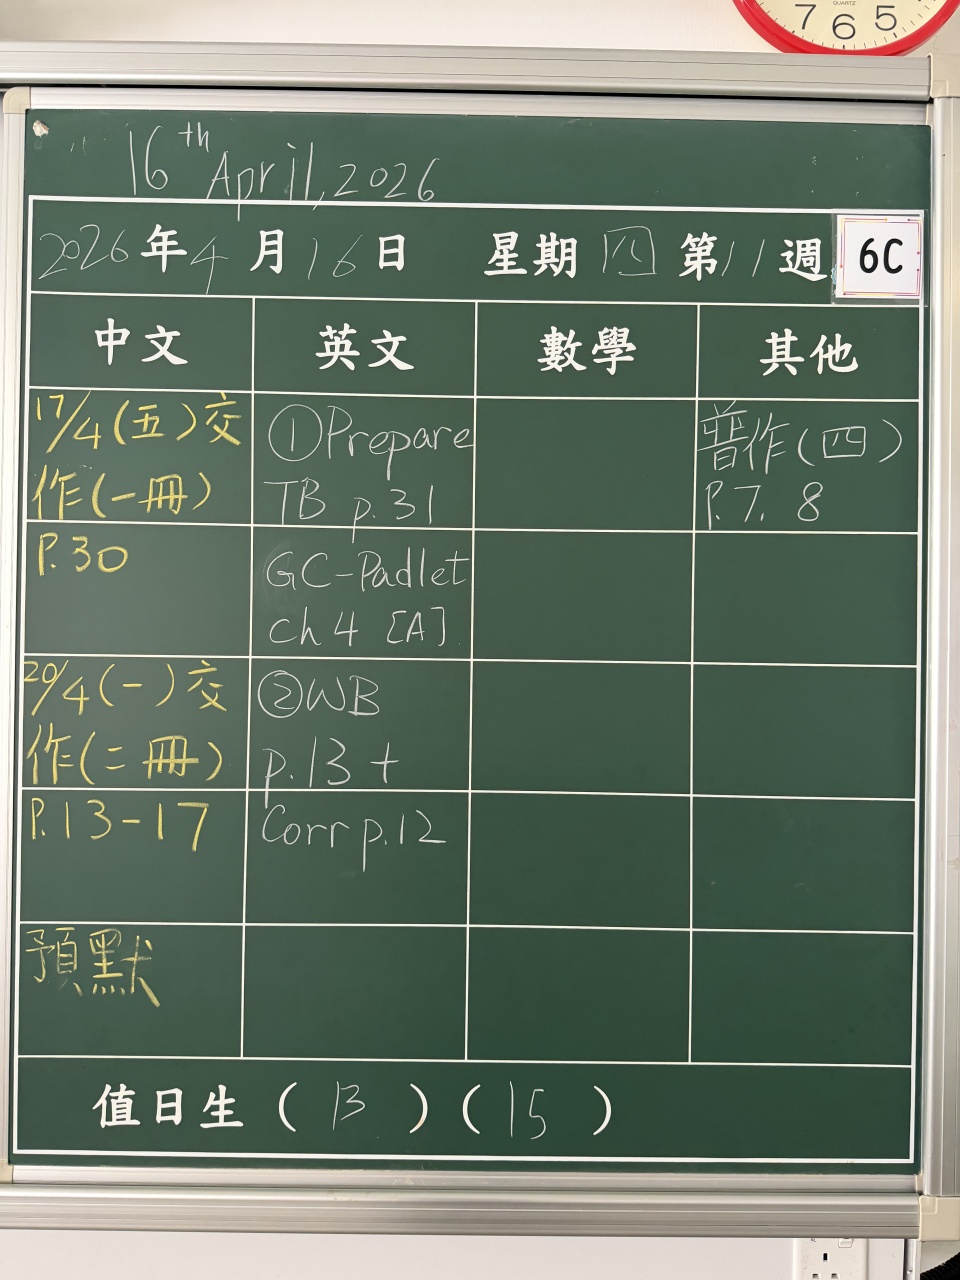 QUARTZ
7 6 5
16th April, 2026
2026年4月16日 星期四 第11週 6C
中文 英文 數學 其他
17/4(五)交
作(一冊)
P.30
20/4(一)交
作(二冊)
P.13-17
預默
①Prepare
TB p.31
GC-Padlet
ch4 [A]
②WB
p.13+
Corr p.12
普作(四)
P.7, 8
值日生(13)(15)